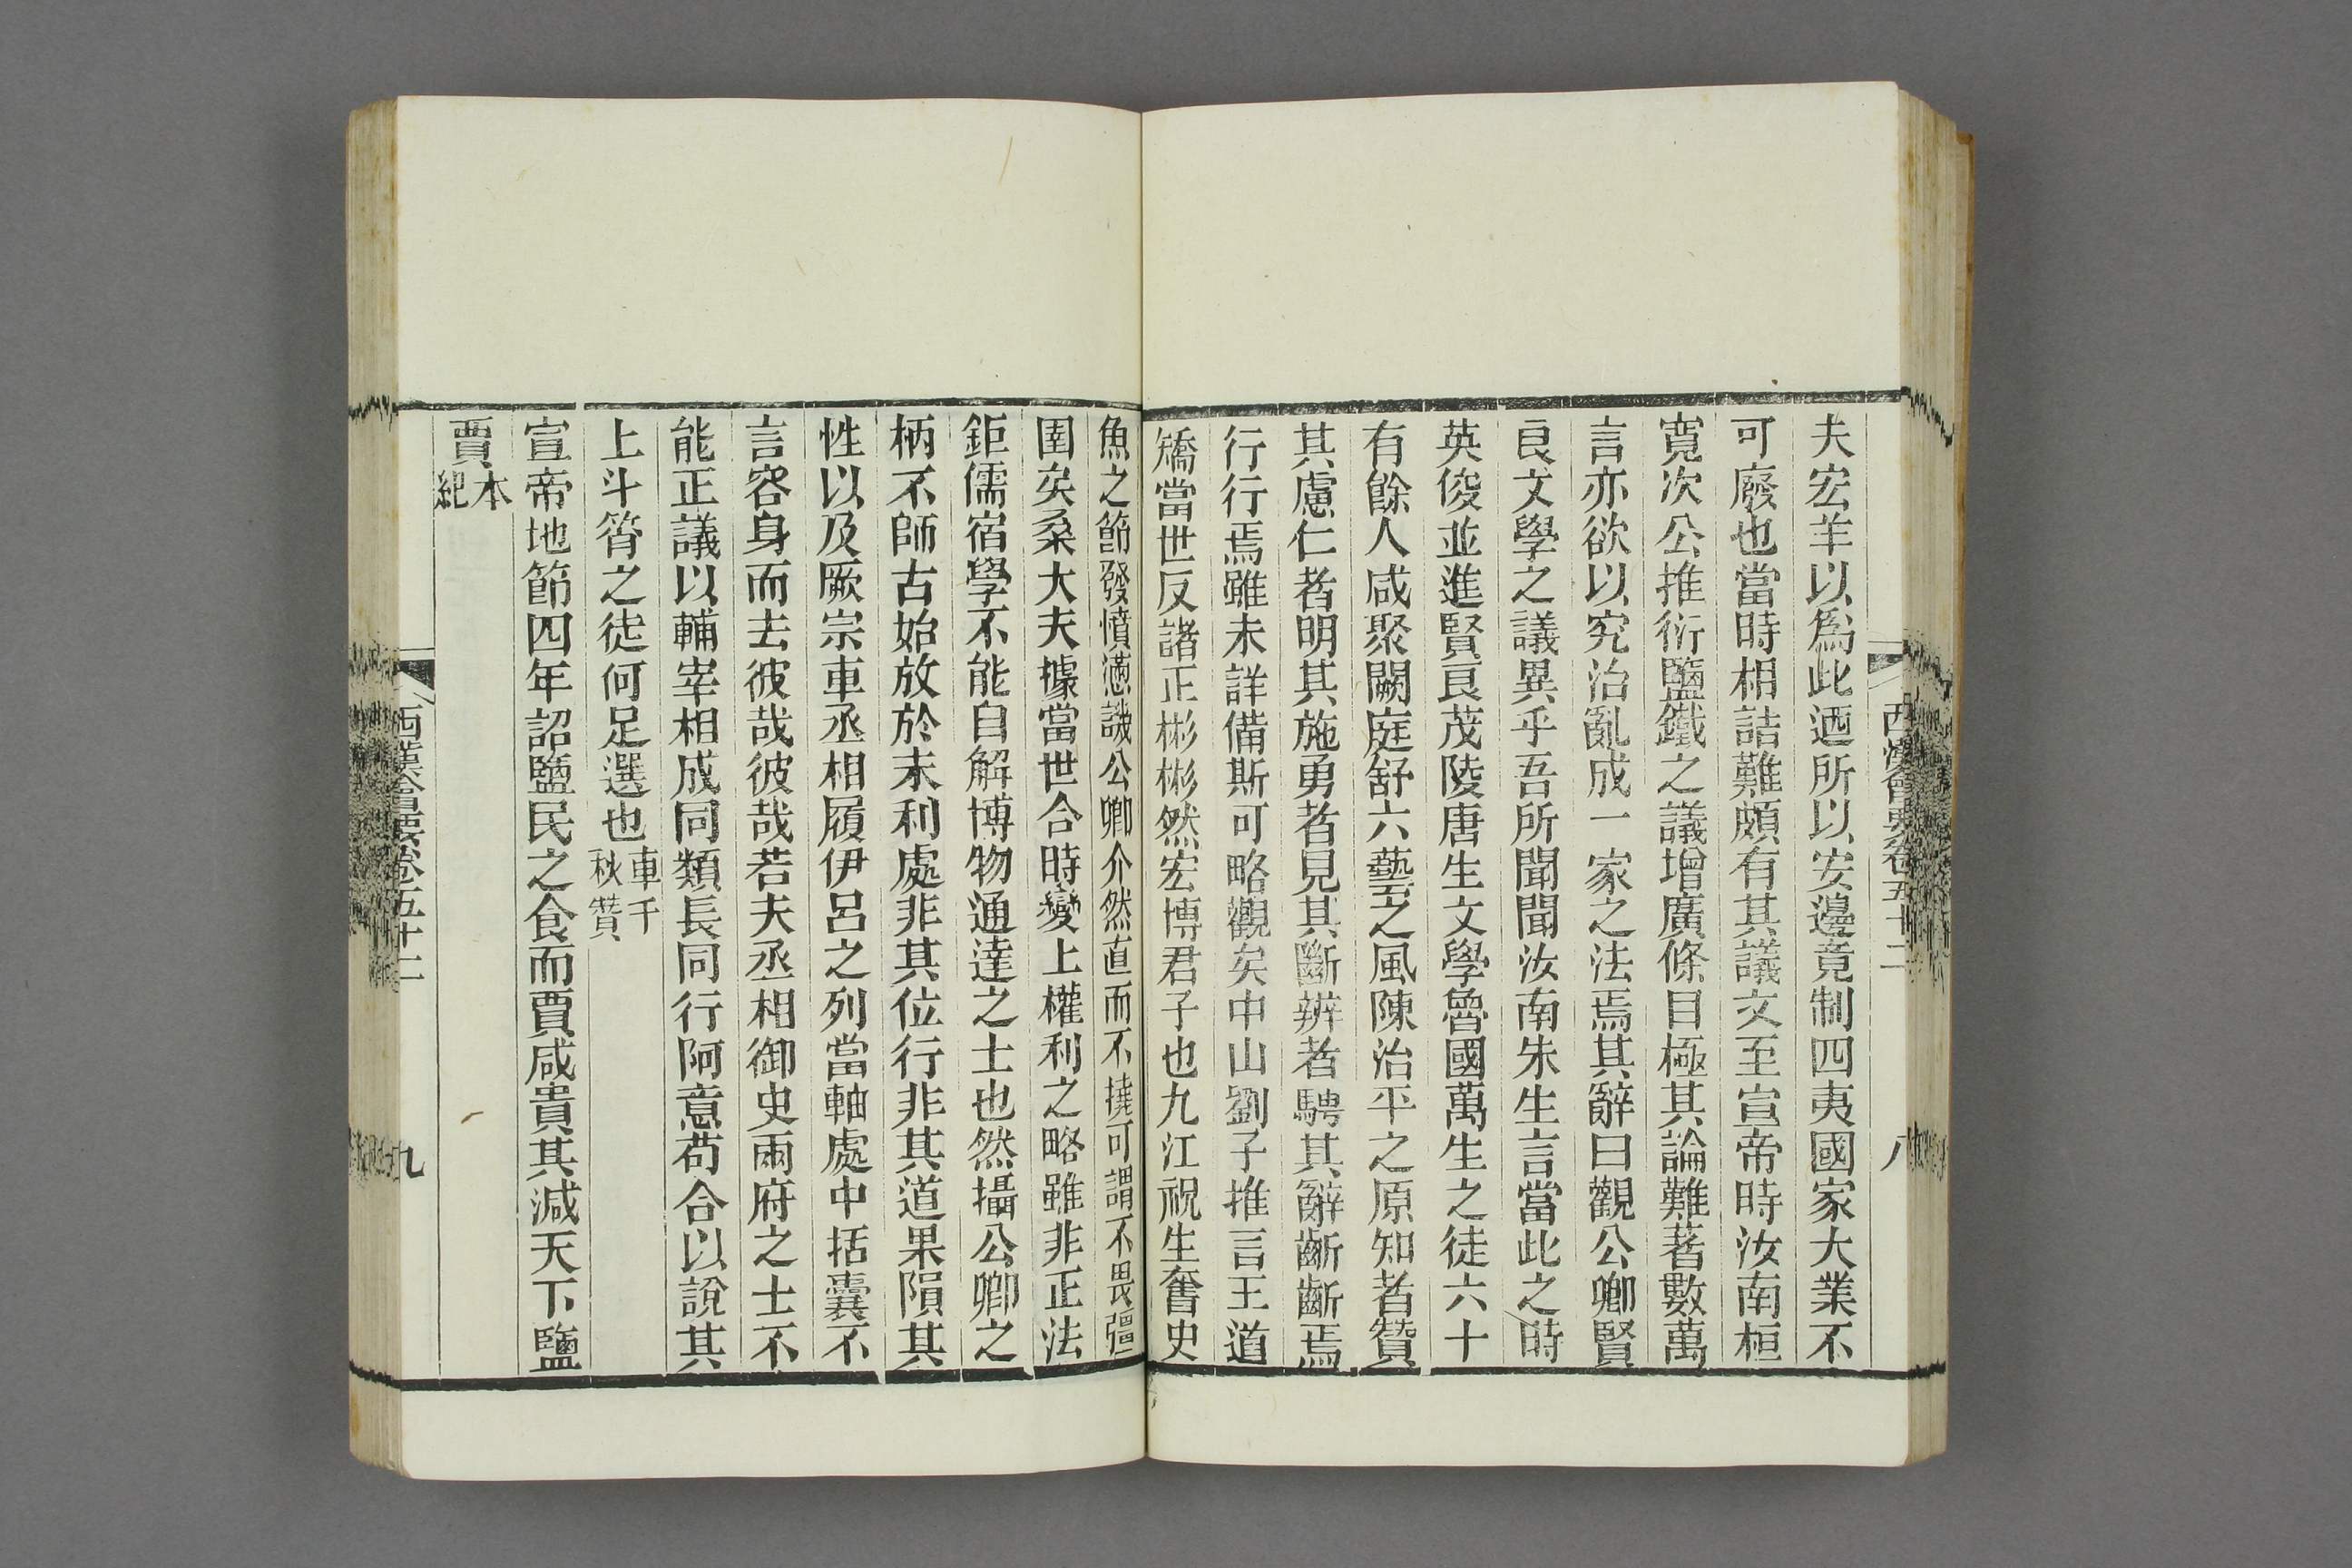 西漢會要卷五十二
八
夫宏羊以爲此迺所以安邊竟制四夷國家大業不
可廢也當時相詰難頗有其議文至宣帝時汝南桓
寬次公推衍鹽鐵之議增廣條目極其論難著數萬
言亦欲以究治亂成一家之法焉其辭曰觀公卿賢
良文學之議異乎吾所聞聞汝南朱生言當此之時
英俊並進賢良茂陵唐生文學魯國萬生之徒六十
有餘人咸聚闕庭舒六藝之風陳治平之原知者贊
其慮仁者明其施勇者見其斷辨者騁其辭齗齗焉
行行焉雖未詳備斯可略觀矣中山劉子推言王道
矯當世反諸正彬彬然宏博君子也九江祝生奮史
魚之節發憤懣譏公卿介然直而不撓可謂不畏彊
圉矣桑大夫據當世合時變上權利之略雖非正法
鉅儒宿學不能自解博物通達之士也然攝公卿之
柄不師古始放於末利處非其位行非其道果隕其
性以及厥宗車丞相履伊呂之列當軸處中括囊不
言容身而去彼哉彼哉若夫丞相御史兩府之士不
能正議以輔宰相成同類長同行阿意苟合以說其
上斗筲之徒何足選也車千秋贊
宣帝地節四年詔鹽民之食而賈咸貴其減天下鹽
賈本紀
西漢會要卷五十二
九